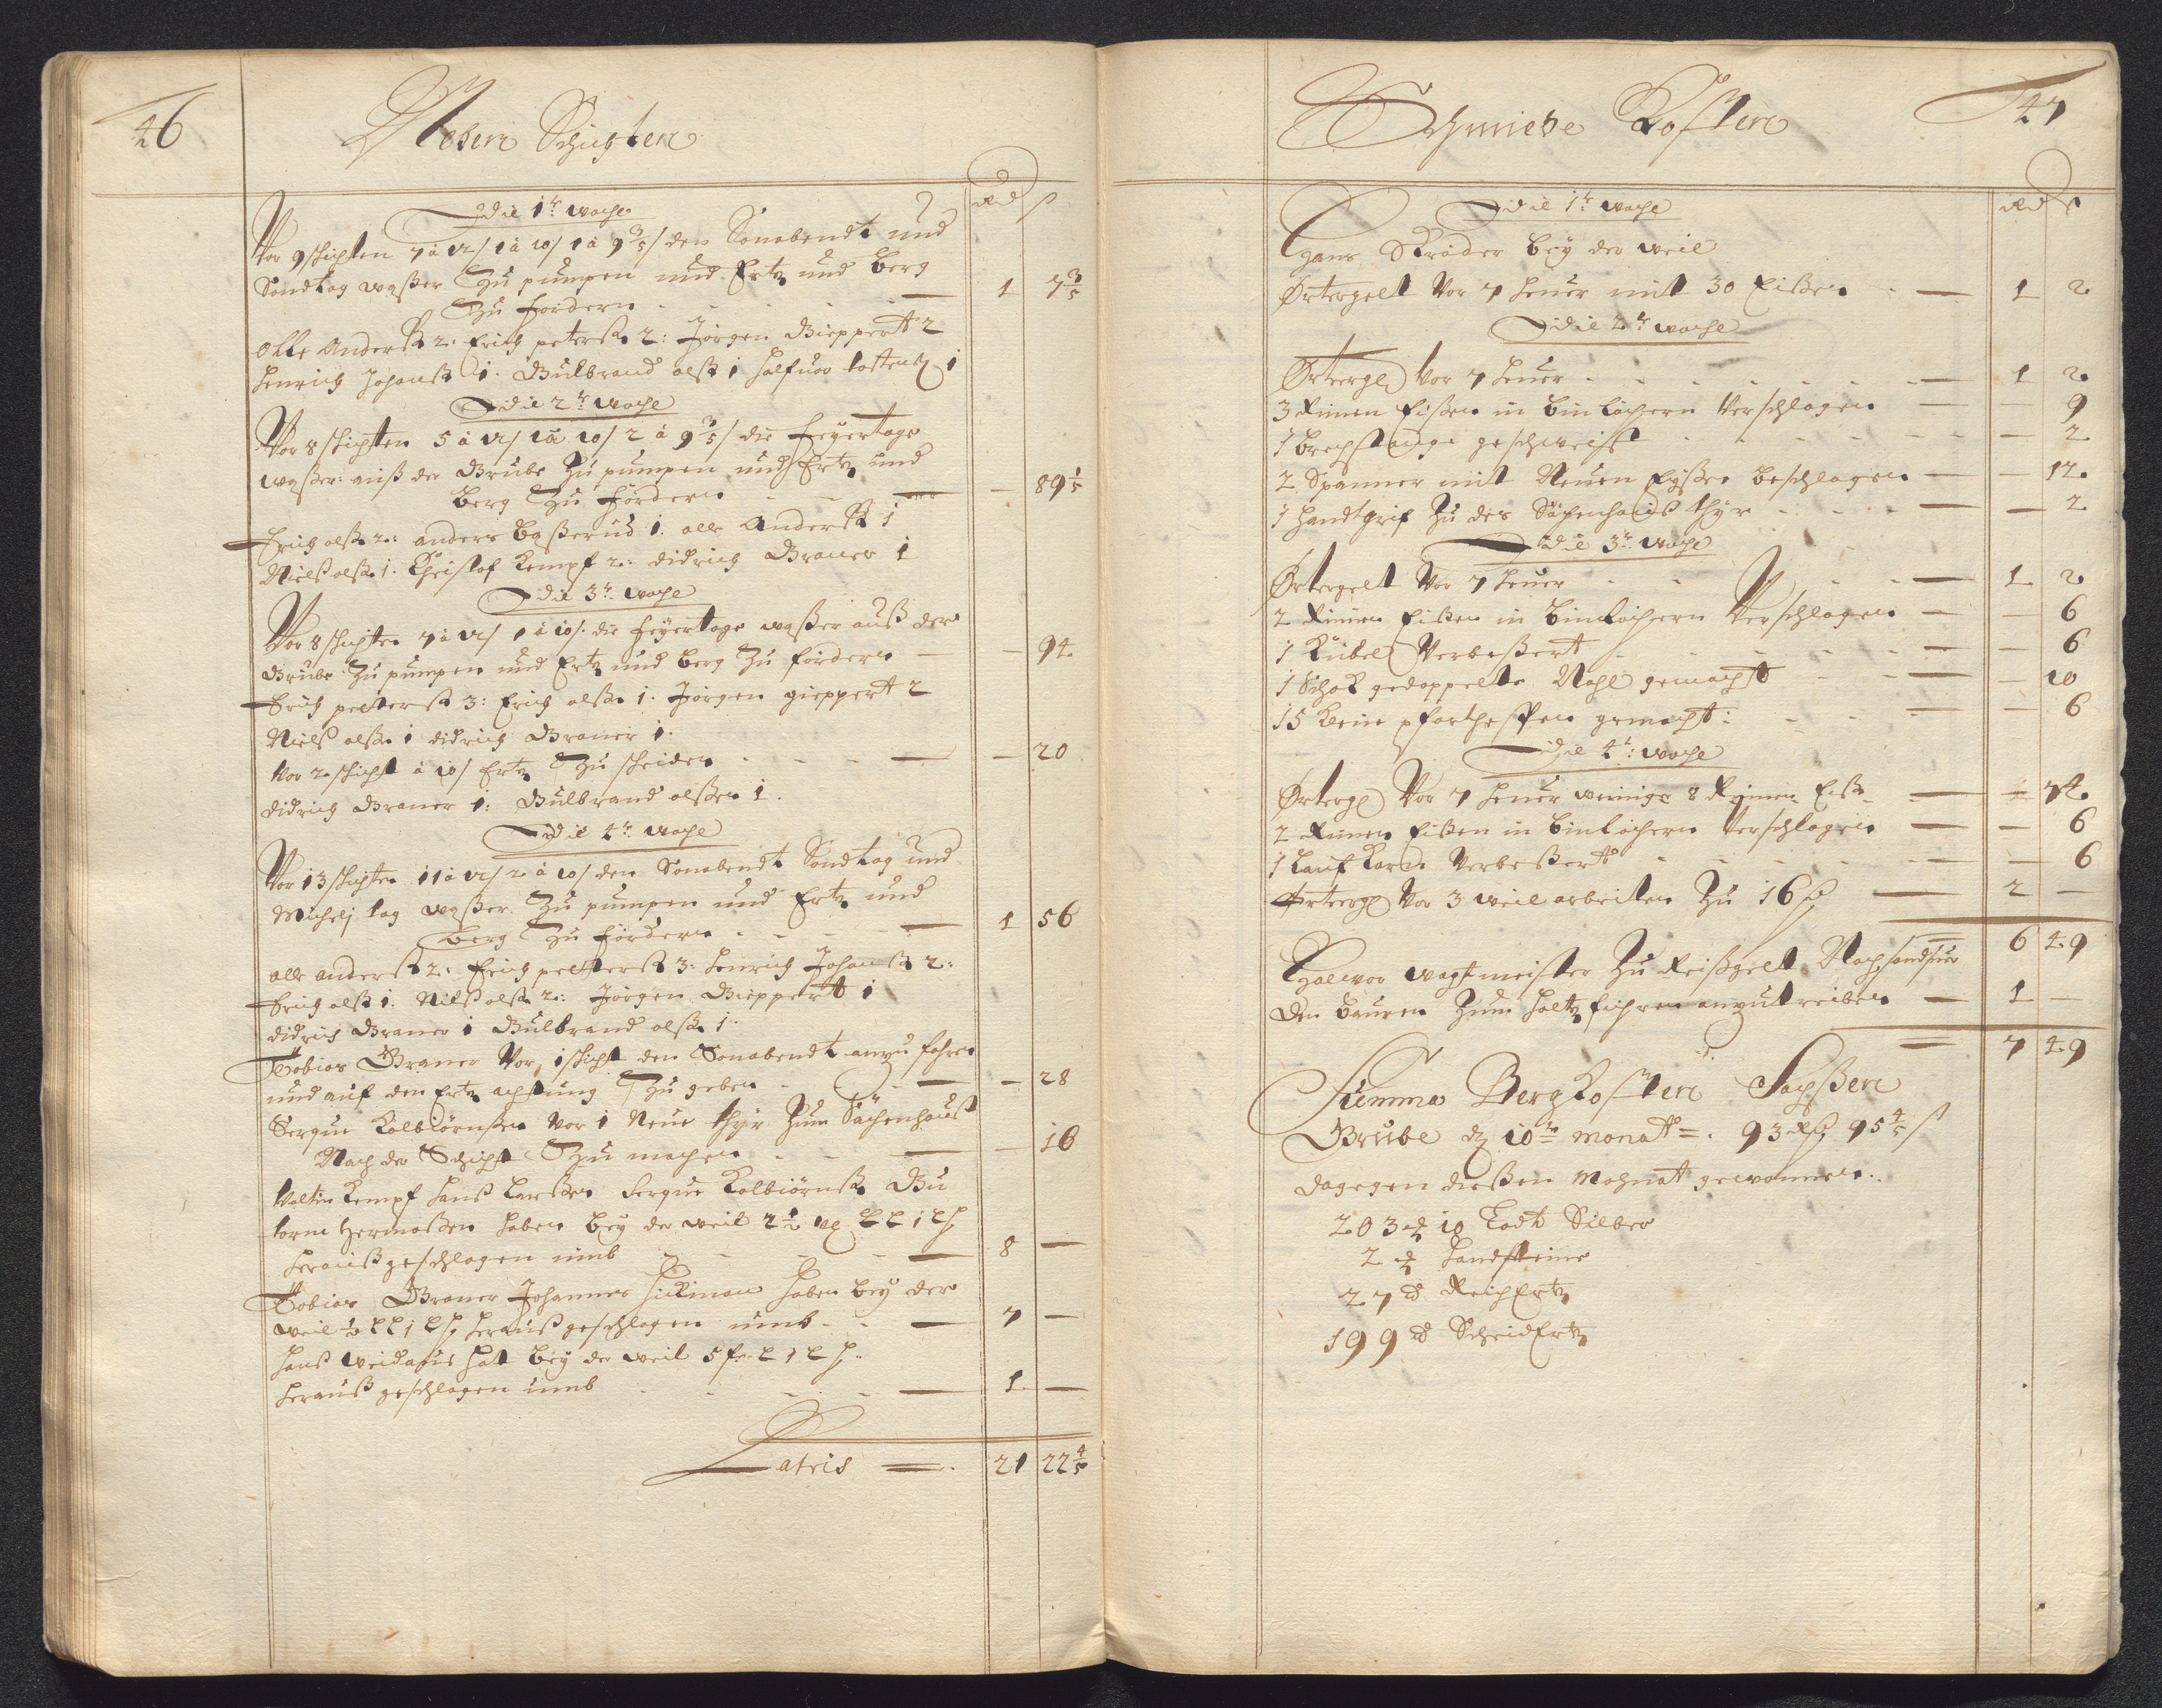 46
Neben Schichten
Rd ß
die 1te woche
Vor 9 schichten 7 à 12/ 1 à 10/ 1 à 9 3/5/ den Sonabendt und
Sondtag waßer Zu pumpen und Ertz und berg
Zu fordern - - - 1 7 3/5
Olle Anderß 2: Erich peterß 2: Jörgen Gieppert 2
Henrich Johanß 1. Gulbrand olß 1 Halfuor 1
die 2te woche
Vor 8 schichten 5 à 12/ 1 à 10/ 2 à 9 3/5/ die feyertage
waßer auß der Grube Zu pumpen und Ertz und
berg Zu fördern - - - 89 1/5
Erich olß 2: anders 1. olle Anderß 1
Nielß olß 1. Christof Kempf 2: didrich Braner 1
die 3te woche
Vor 8 schichten 7 à 12/ 1 à 10/. die feyertage waßer auß der
Grube Zu pumpen und Ertz und berg Zu fördern - 94
Erich petterß 3: Erich olß 1. Jörgen gieppert 2
Nielß olß 1 didrich Braner 1.
Vor 2 schicht à 10/ Ertz Zu scheiden - - - 20
didrich Braner 1: Gulbrand olßen 1.
die 4te woche
Vor 13 schichten 11 à 12/ 2 à 10/ den Sonabendt Sondtag und
Michely tag waßer Zu pumpen und Ertz und
berg Zu fördern - - - 1 56
olle anderß 2: Erich petterß 3: Henrich Johanß 2:
Erich olß 1. Nilß olß 2: Jörgen Gieppert 1
didrich Braner 1 Gulbrand olß 1.
Tobias Braner Vor 1 schicht den Sonabendt anzufahren
und auf den Ertz achtung Zu geben - - - 28
Kolbiörnßen Vor 1 Neue thyr Zum Sächenhauß
Nach der Schicht Zu machen - - - 16
Valtin Kempf Hanß Larßen Kolbiörnß Gu
torm Hermoßen haben bey der weil 2 1/2
herauß geschlagen umb - - - 8 —
Tobias Braner Johannes Hickman haben bey der
weil herauß geschlagen umb - - 7 —
Hanß hat bey der weil 5
herauß geschlagen umb - - - 1 —
Latris 21 22 4/5
47
Schmiede Kosten
Rd ß
die 1te woche
Hans Ströder bey der weil
Örtergelt Vor 7 heuer mit 30 Eißen - 1 2
die 2te woche
Örtergl Vor 7 heuer - - - 1 2
3 Rimen Eißen in binlöchern Verschlagen - 9
1 brechstange geschweist - - - 2
2 Spanner mit Neuen Eyßen beschlagen - 12
1 Handtgrif Zu des Sächenhauß thyr - - 2
die 3te woche
Örtergelt Vor 7 heuer - - - 1 2
2 Rimen Eißen in binlöchern Verschlagen - 6
1 Kübel Verbeßert - - - 6
1 Schok gedoppelte Nagel gemacht - - 10
15 kleine gemacht: - - - 6
die 4te: woche
Örtergl Vor 7 heuer weinige 8 Rimen Eiß - 74
2 Rimen Eißen in binlöchern Verschlagen - 6
1 Lauf Karn Verbeßert - - - 6
Örtergl Vor 3 weil arbeiten Zu 16 ß - 2 —
6 49
Halwor wagtmeister Zu Reißgelt Nach
den bauren Zum holtz führen anzutreiben - 1 —
7 49
Summa Bergkosten Sachßen
Grube dz 10te monat = 93 Rd 95 4/5 ß
dagegen dießen Mohnat gewonnen:
203 10 Lodt Silber
2 handsteine
27 ReichErtz
199 ScheidErtz